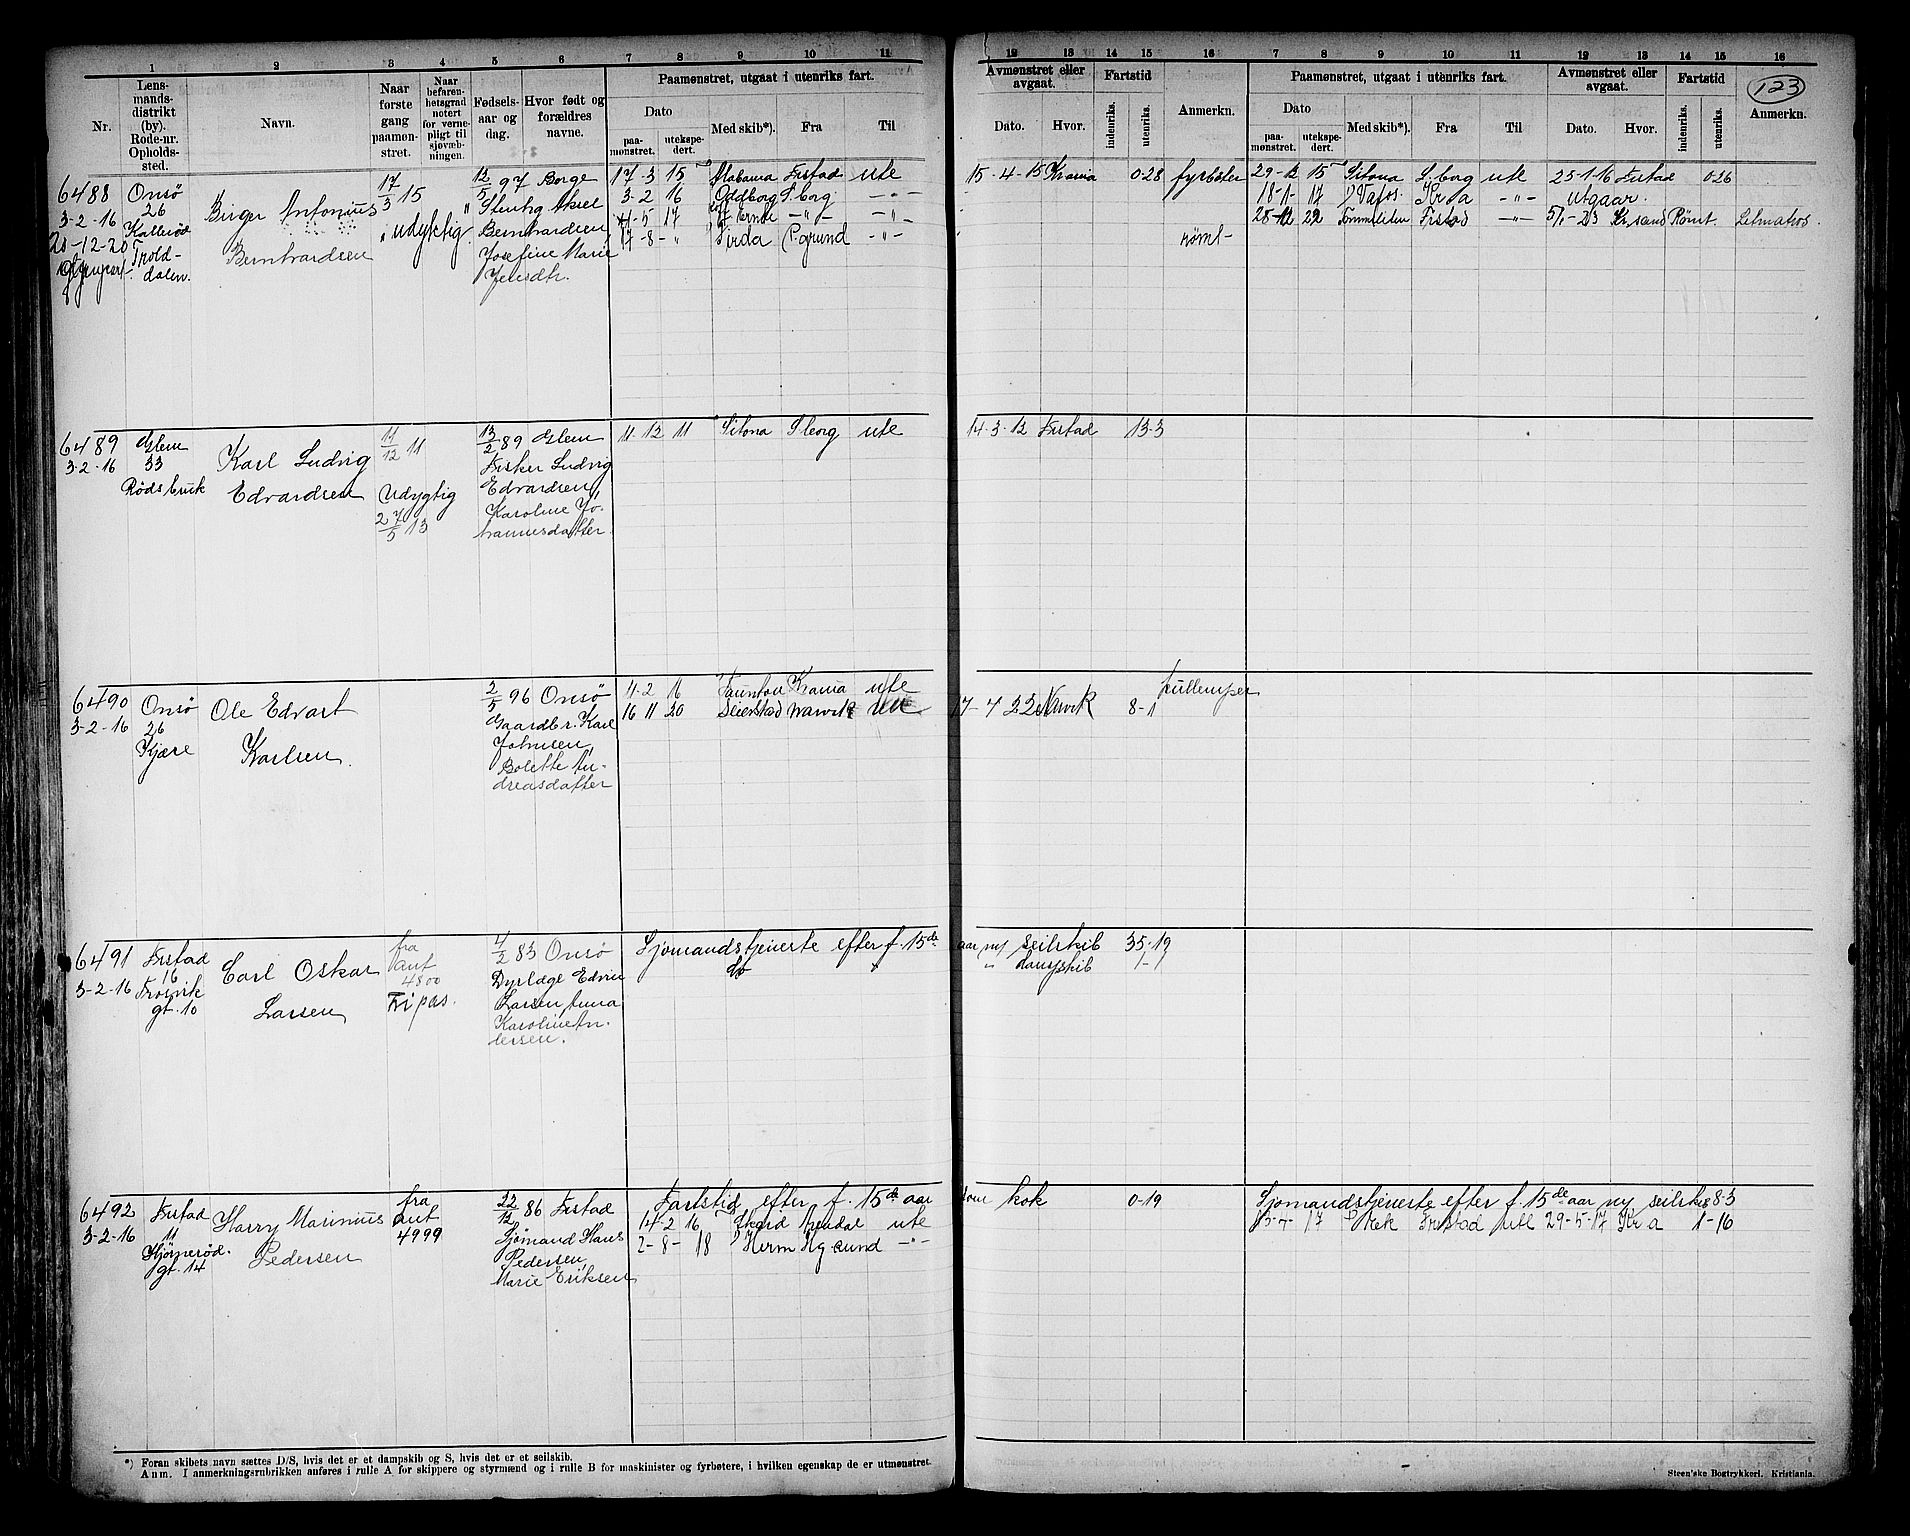 1 2 3 4 5 6 7 8 9 10 11
Nr.
Lens-
mands-
distrikt
(by).
Rode-nr.
Opholds-
sted.
Navn.
Naar
første
gang
paamøn-
stret.
Naar
befaren-
hetsgrad
notert
for verne-
pligt til
sjøvæb-
ningen.
Fødsels-
aar og
dag.
Hvor født og
forældres
navne.
Paamønstret, utgaat i utenriks fart.
Dato
paa-
mønstret.
utekspe-
dert.
Med skib*).
Fra
Til
12 13 14 15 16 7 8 9 10 11 12 13 14 15 16
Avmønstret eller
avgaat.
Dato.
Hvor.
Fartstid
indenriks.
utenriks.
Anmerkn.
Paamønstret, utgaat i utenriks fart.
Dato
paa-
mønstret.
utekspe-
dert.
Med skib*).
Fra
Til
Avmønstret eller
avgaat.
Dato.
Hvor.
Fartstid
indenriks.
utenriks.
123
Anmerkn.
6488
3-2-16
Onsø
26
Kallerød
Trold-
dalen.
Birger Antonius
Berntvardsen
17/3 15
" udyktig
12/5 97 Borge
Stenhg Aksel
Berntvardsen,
Josefine Marie
Jensdtr.
17-3 15 Alabama Frstad ute
3-2 16 Oddborg S.borg -"-
-5 17 -"- -"-
17-8-" P.grund -"-
15-4-15 Krania 0-28 fyrbøter
rømt-
29-12 15 Sitona S.borg ute 25-1-16 Frstad 0-26
18-1-17 Vafos Kr a -"- Utgaar.
28-12 22 Frstad -"- 5/1-23 Kr.sand Rømt. Letmatros.
6489
3-2-16
Glem
33
Karl Ludvig
Edvardsen
11/12 11
Udygtig
27/5 13
13/2 89 Glem
Fisker Ludvig
Edvardsen,
Karoline Jo-
hannesdatter.
11-12 11 Sitona S borg ute
14-3-12 Frstad 13-3
6490
3-2-16
Onsø
26
Kjære
Ole Edvart
Karlsen.
2/5 96 Onsø
Gaardbr. Karl
Johnsen,
Bolette An-
dreasdatter
4-2 16 Taunton Krania ute
16 11 20 Seierstad Narvik ute
17-4 22 Narvik 8-1
6491
3-2-16
Frstad
16
Trosvik
gt. 10
Carl Oskar
Larsen
fra
ant
4800
Fripas.
4/2 83 Onsø
Dyrlæge Edvin
Larsen Anna
Karoline An-
dersen.
Sjømandstjeneste efter f. 15de aar ny seilskib 35-19
do " dampskib 1-9
6492
3-2-16
Frstad
11
Hjørnerød.
gt. 14
Harry Marinius
Pedersen
fra
ant
4999
22/12 86 Frstad
Sjømand Hans
Pedersen,
Marie Eriksen
Fartstid efter f. 15de aar som kok 0-19
14-2 16 Skard ute
2-8-18 -"-
Sjømandstjeneste efter f. 15de aar ny seilskib 8-3
13-4-17 Frstad ute 29-5-17 Kr a 1-16
*) Foran skibets navn sættes D/S, hvis det er et dampskib og S, hvis det er et seilskib.
Anm. I anmerkningsrubrikken anføres i rulle A for skippere og styrmænd og i rulle B for maskinister og fyrbøtere, i hvilken egenskap de er utmønstret.
Steen'ske Bogtrykkeri. Kristiania.